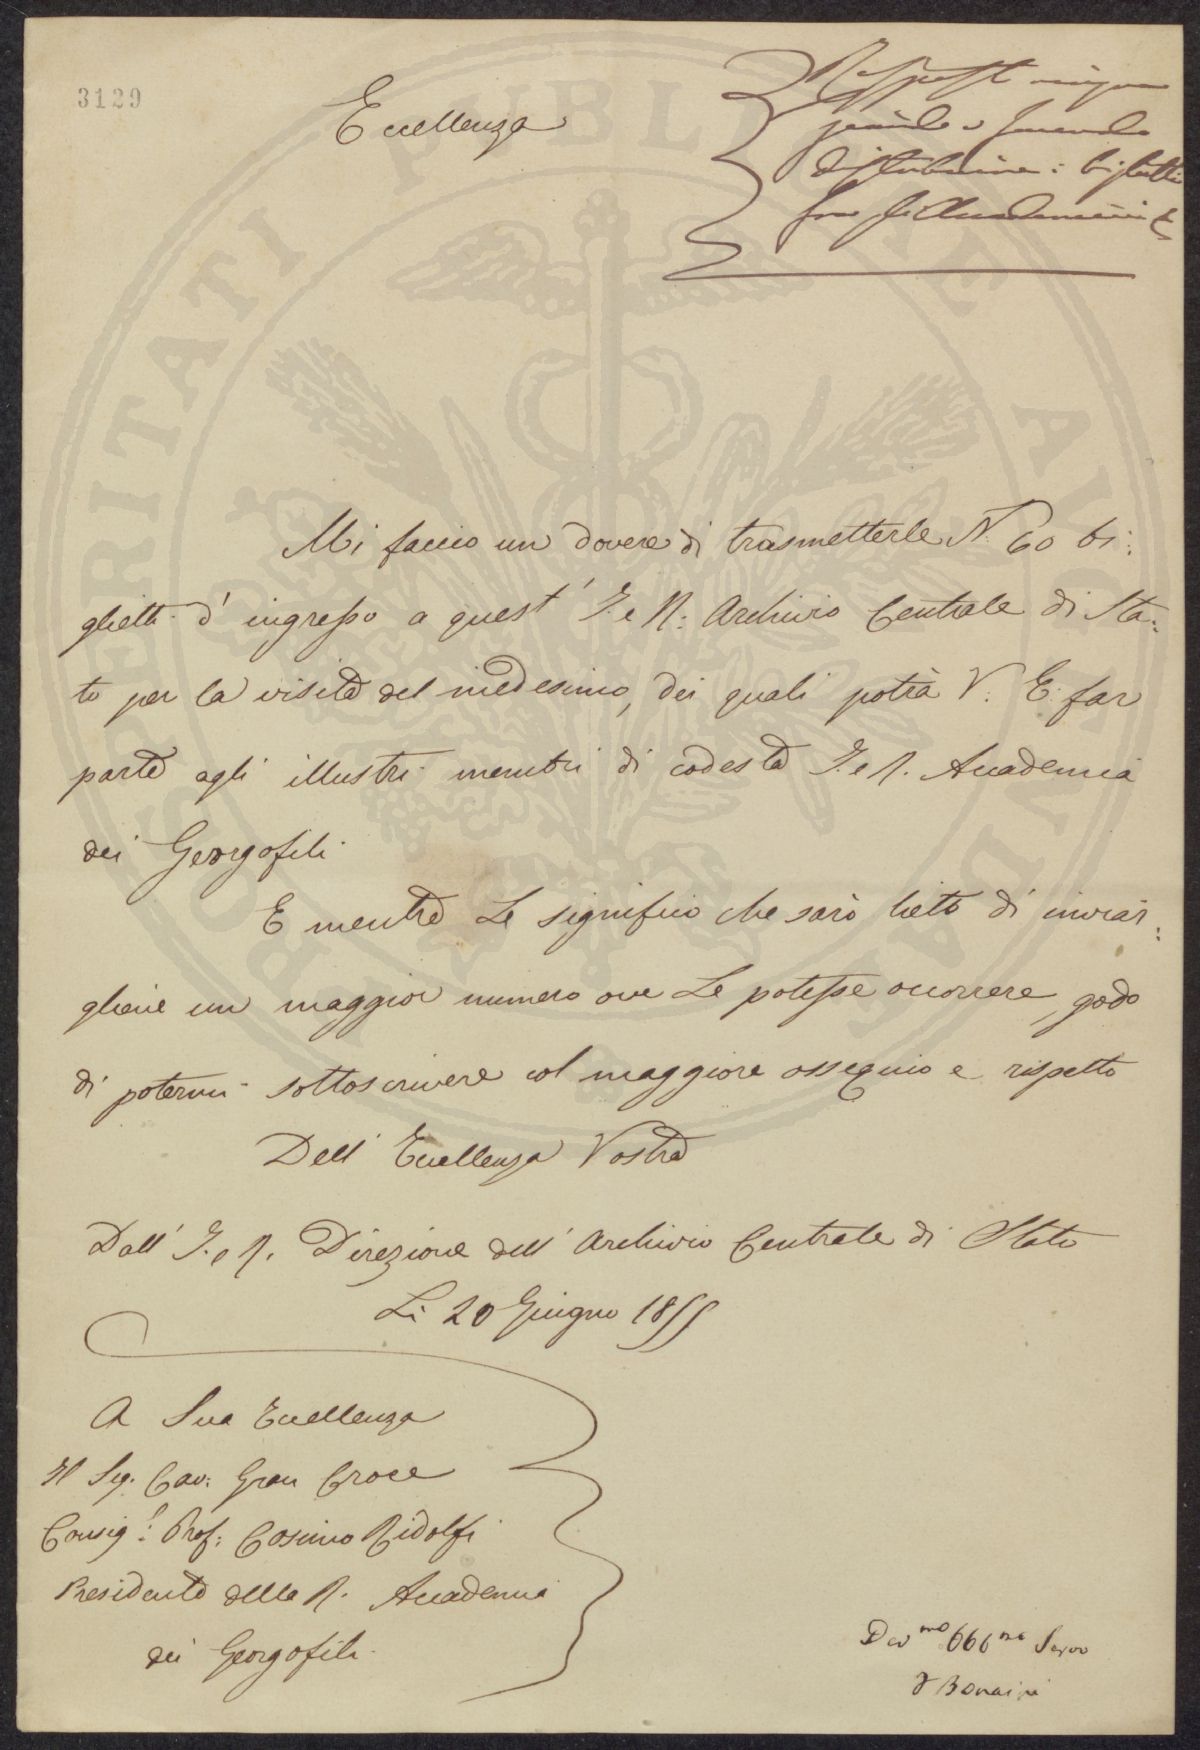 3129
Eccellenza
Risposto
distribuire i biglietti
fra gli Accademici
Mi faccio un dovere di trasmetterle N. 60 bi:
glietti d' ingresso a quest' I. e R: Archivio Centrale di Sta:
to per la visita del medesimo, dei quali potrà V. E. far
parte agli illustri membri di codesta I. e R. Accademia
dei Georgofili.
E mentre Le significo che sarò lieto d' inviar:
gliene un maggior numero ove Le potesse occorrere, godo
di potermi sottoscrivere col maggiore ossequio e rispetto
Dell' Eccellenza Vostra
Dall' I. e R. Direzione dell' Archivio Centrale di Stato
Li 20 Giugno 1855
A Sua Eccellenza
Il Sig. Cav: Gran Croce
Consig.: Prof: Cosimo Ridolfi
Presidente della R. Accademia
dei Georgofili.
Dev mo Obb mo Servo
F Bonaini
PROSPERITATI PUBLICAE AUGENDAE